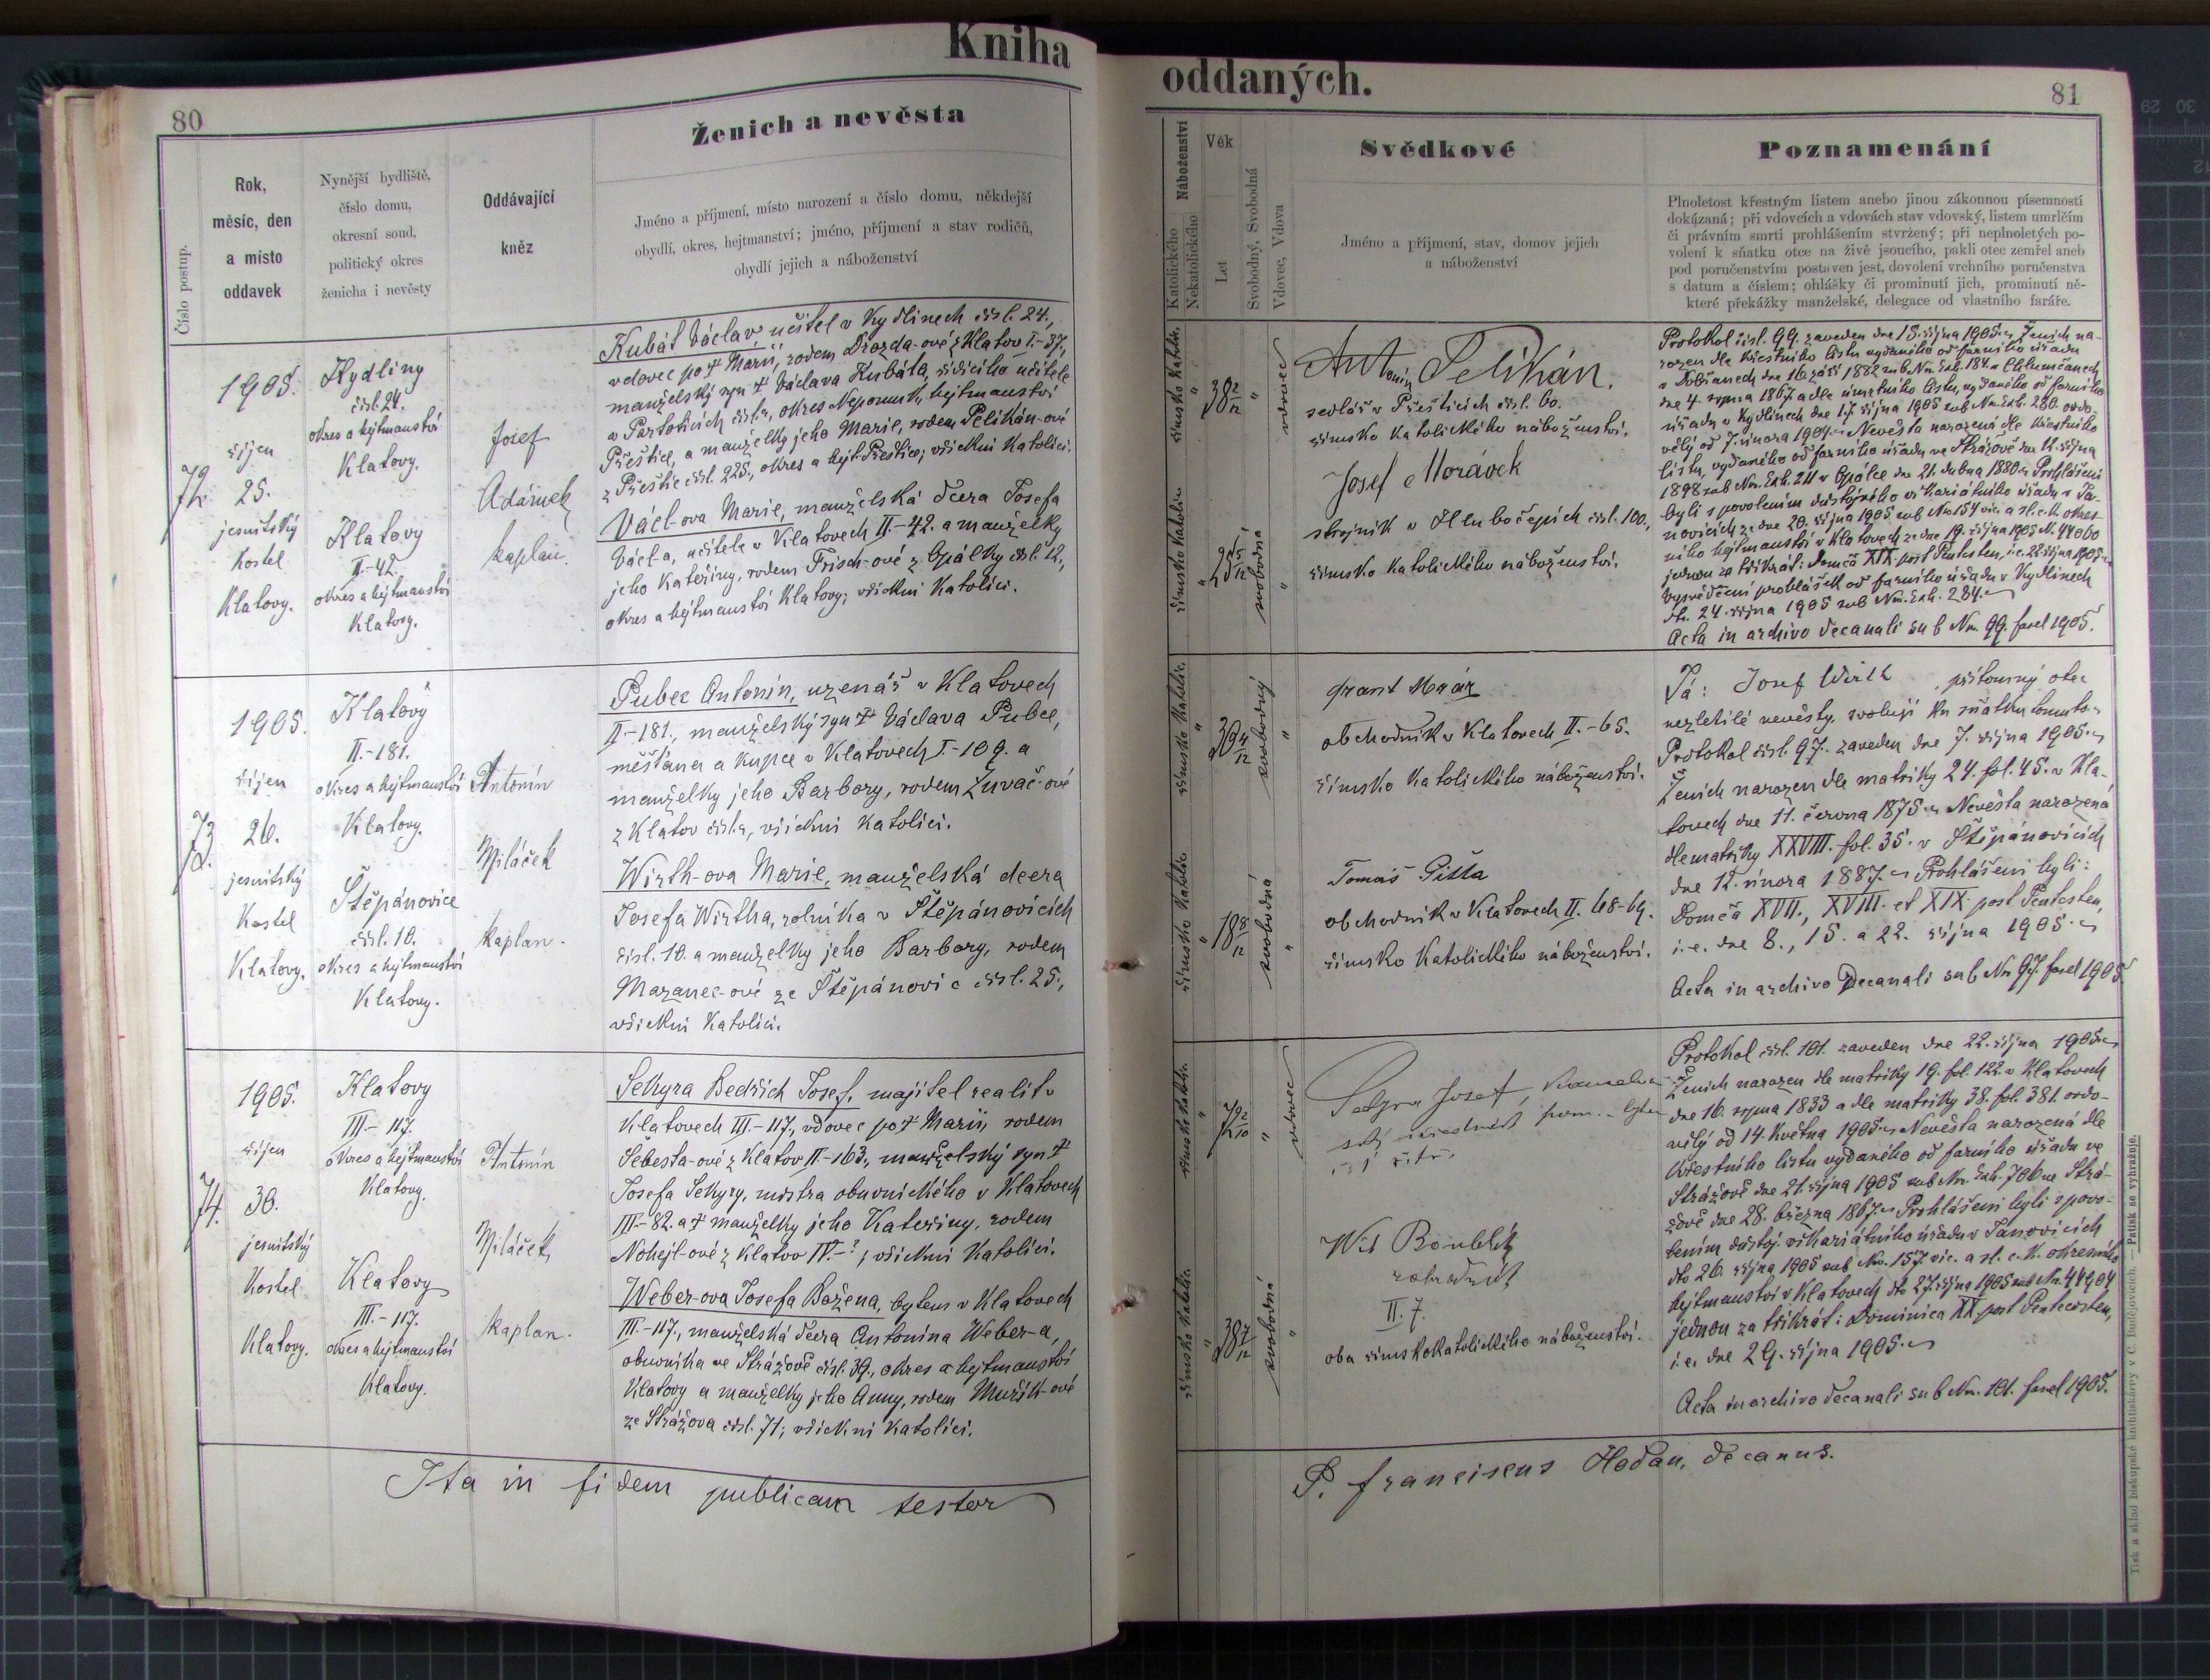 Kniha
80
Číslo postup.
Rok,
měsíc, den
a místo
oddavek
Nynější bydliště,
číslo domu,
okresní soud,
politický okres
ženicha i nevěsty
Oddávající
kněz
Ženich a nevěsta
Jméno a příjmení, místo narození a číslo domu, někdejší
obydlí, okres, hejtmanství; jméno, příjmení a stav rodičů,
obydlí jejich a náboženství
72.
1905.
říjen
25.
jesuitský
kostel
Klatovy.
Kydliny
čísl. 24.
okres a hejtmanství
Klatovy.
Klatovy
II.-42.
okres a hejtmanství
Klatovy.
Josef
Adámek
kaplan.
Kubát Václav učitel v Kydlinech čísl. 24.,
vdovec po † Marii, rodem Drozda-ové z Klatov I.-37.,
manželský syn † Václava Kubáta, řídícího učitele
v Partoticích čísla, okres Nepomuk, hejtmanství
Přeštice, a manželky jeho Marie, rodem Pelikán-ové
z Přeštic čísl. 225., okres a hejt. Přeštice; všickni katolíci.
Václ-ova Marie, manželská dcera Josefa
Václa, učitele v Klatovech II.-42. a manželky
jeho Kateřiny, rodem Frisch-ové z Opálky čísl. 12.,
okres a hejtmanství Klatovy; všickni katolíci.
73.
1905.
říjen
26.
jesuitský
Kostel
Klatovy.
Klatovy
II.-181.
okres a hejtmanství
Klatovy.
Štěpánovice
čísl. 10.
okres a hejtmanství
Klatovy.
Antonín
Miláček
kaplan.
Pubec Antonín, uzenář v Klatovech
II-181., manželský syn † Václava Pubce,
měšťana a kupce v Klatovech I-109. a
manželky jeho Barbory, rodem Zuvač-ové
z Klatov čísla, všickni katolíci.
Wirth-ova Marie, manželská dcera
Josefa Wirtha, rolníka v Štěpánovicích
čísl. 10. a manželky jeho Barbory, rodem
Mazanec-ové ze Štěpánovic čísl. 25.,
všickni katolíci.
74.
1905.
říjen
30.
jesuitský
Kostel
Klatovy.
Klatovy
III-117.
okres a hejtmanství
Klatovy.
Klatovy
III.-117.
okres a hejtmanství
Klatovy.
Antonín
Miláček
kaplan.
Sekyra Bedřich Josef, majitel realit v
Klatovech III-117., vdovec po † Marii, rodem
Šebesta-ové z Klatov II-163., manželský syn †
Josefa Sekyry, mistra obuvnického v Klatovech
III-82. a † manželky jeho Kateřiny, rodem
Nohejl-ové z Klatov IV.-?, všickni katolíci.
Weber-ova Josefa Božena, bytem v Klatovech
III-117., manželská dcera Antonína Weber-a,
obuvníka ve Strážově čísl. 39., okres a hejtmanství
Klatovy a manželky jeho Anny, rodem Muřík-ové
ze Strážova čísl. 71; všickni katolíci.
Ita in fidem publicam testor
oddaných.
81
Náboženství
Katolického
Nekatolického
Věk
Let
Svobodný, Svobodná
Vdovec, Vdova
Svědkové
Jméno a příjmení, stav, domov jejich
a náboženství
Poznamenání
Plnoletost křestným listem anebo jinou zákonnou písemností
dokázaná; při vdovcích a vdovách stav vdovský, listem umrlčím
či právním smrti prohlášením stvržený; při neplnoletých po-
volení k sňatku otce na živě jsoucího, pakli otec zemřel aneb
pod poručenstvím postaven jest, dovolení vrchního poručenstva
s datum a číslem; ohlášky či prominutí jich, prominutí ně-
které překážky manželské, delegace od vlastního faráře.
římsko katolic.
38 2/12
vdovec
římsko katolic.
25 5/12
svobodná
Antonín Pelikán.
sedlář v Přešticích čísl. 60.
římsko katolického náboženství.
Josef Morávek
strojník v Hlubočepích čísl. 100,
římsko katolického náboženství.
Protokol čísl. 99. zaveden dne 15. října 1905. Ženich na-
rozen dle křestního listu vydaného od farního úřadu
v Dobřanech dne 16. září 1882 sub Nr. Exh. 184. v Chlumčanech
dne 4. srpna 1867 a dle úmrtního listu, vydaného od farního
úřadu v Kydlinech dne 17. října 1905 sub Nr. Exh. 260. ovdo-
vělý od 7. února 1904. Nevěsta narozená dle křestního
listu, vydaného od farního úřadu ve Strážově dne 12. října
1898 sub Nr. Exh. 211 v Opálce dne 21. dubna 1880. Prohlášeni
byli s povolením důstojného vikariátního úřadu v Ja-
novicích ze dne 20. října 1905 sub Nr. 154 vic. a sl. c. k. okres-
ního hejtmanství v Klatovech ze dne 19. října 1905 N. 44060
jednou za třikrát: Domca XIX post Pentcsten, i.e. 22. října 1905.
Vysvědčení prohlášek od farního úřadu v Kydlinech
dto. 24. října 1905 sub Nr. Exh. 284.
Acta in archivo decanali sub Nr. 99. fascl 1905.
římsko katolic.
30 4/12
svobodný
římsko katolic.
18 8/12
svobodná
obchodník v Klatovech II.-65.
římsko katolického náboženství.
Tomáš
obchodník v Klatovech II. 68-69.
římsko katolického náboženství.
Já: Josef Wirth přítomný otec
nezletilé nevěsty, svoluji ku sňatku tomuto.
Protokol čísl. 97. zaveden dne 7. října 1905.
Ženich narozen dle matriky 24. fol. 45. v Kla-
tovech dne 11. června 1875. Nevěsta narozená
dle matriky XXVIII. fol. 35. v Štěpánovicích
dne 12. února 1887. Prohlášeni byli:
Domca XVII., XVIII. et XIX. post Pentcsten,
i.e. dne 8., 15. a 22. října 1905.
Acta in archivo Decanali sub Nr. 97. fascl 1905.
římsko katolic.
72 2/10
vdovec
římsko katolic.
38 7/12
svobodná
Sekyra Josef,
Wit Roubík
zahradník
II. 7.
oba římskokatolického náboženství.
Protokol čísl. 101. zaveden dne 22. října 1905.
Ženich narozen dle matriky 19. fol. 122. v Klatovech
dne 16. srpna 1833 a dle matriky 38. fol. 381. ovdo-
vělý od 14. května 1905. Nevěsta narozená dle
křestního listu vydaného od farního úřadu ve
Strážově dne 21. října 1905 sub Nr. Exh. 706 ve Strá-
žově dne 28. března 1867. Prohlášeni byli s povo-
lením důstoj. vikariátního úřadu v Janovicích
dto 26. října 1905 sub Nr. 157. vic. a sl. c. k. okresního
hejtmanství v Klatovech dto 27. října 1905 sub Nr. 44904
jednou za třikrát: Dominica XX post Pentecosten,
i.e. dne 29. října 1905.
Acta in archivo decanali sub Nr. 101. fascl 1905.
P. Franciscus Hodan, decanus.
Tisk a sklad biskupské knihtiskárny v Č. Budějovicích. — Patisk se vyhražuje.